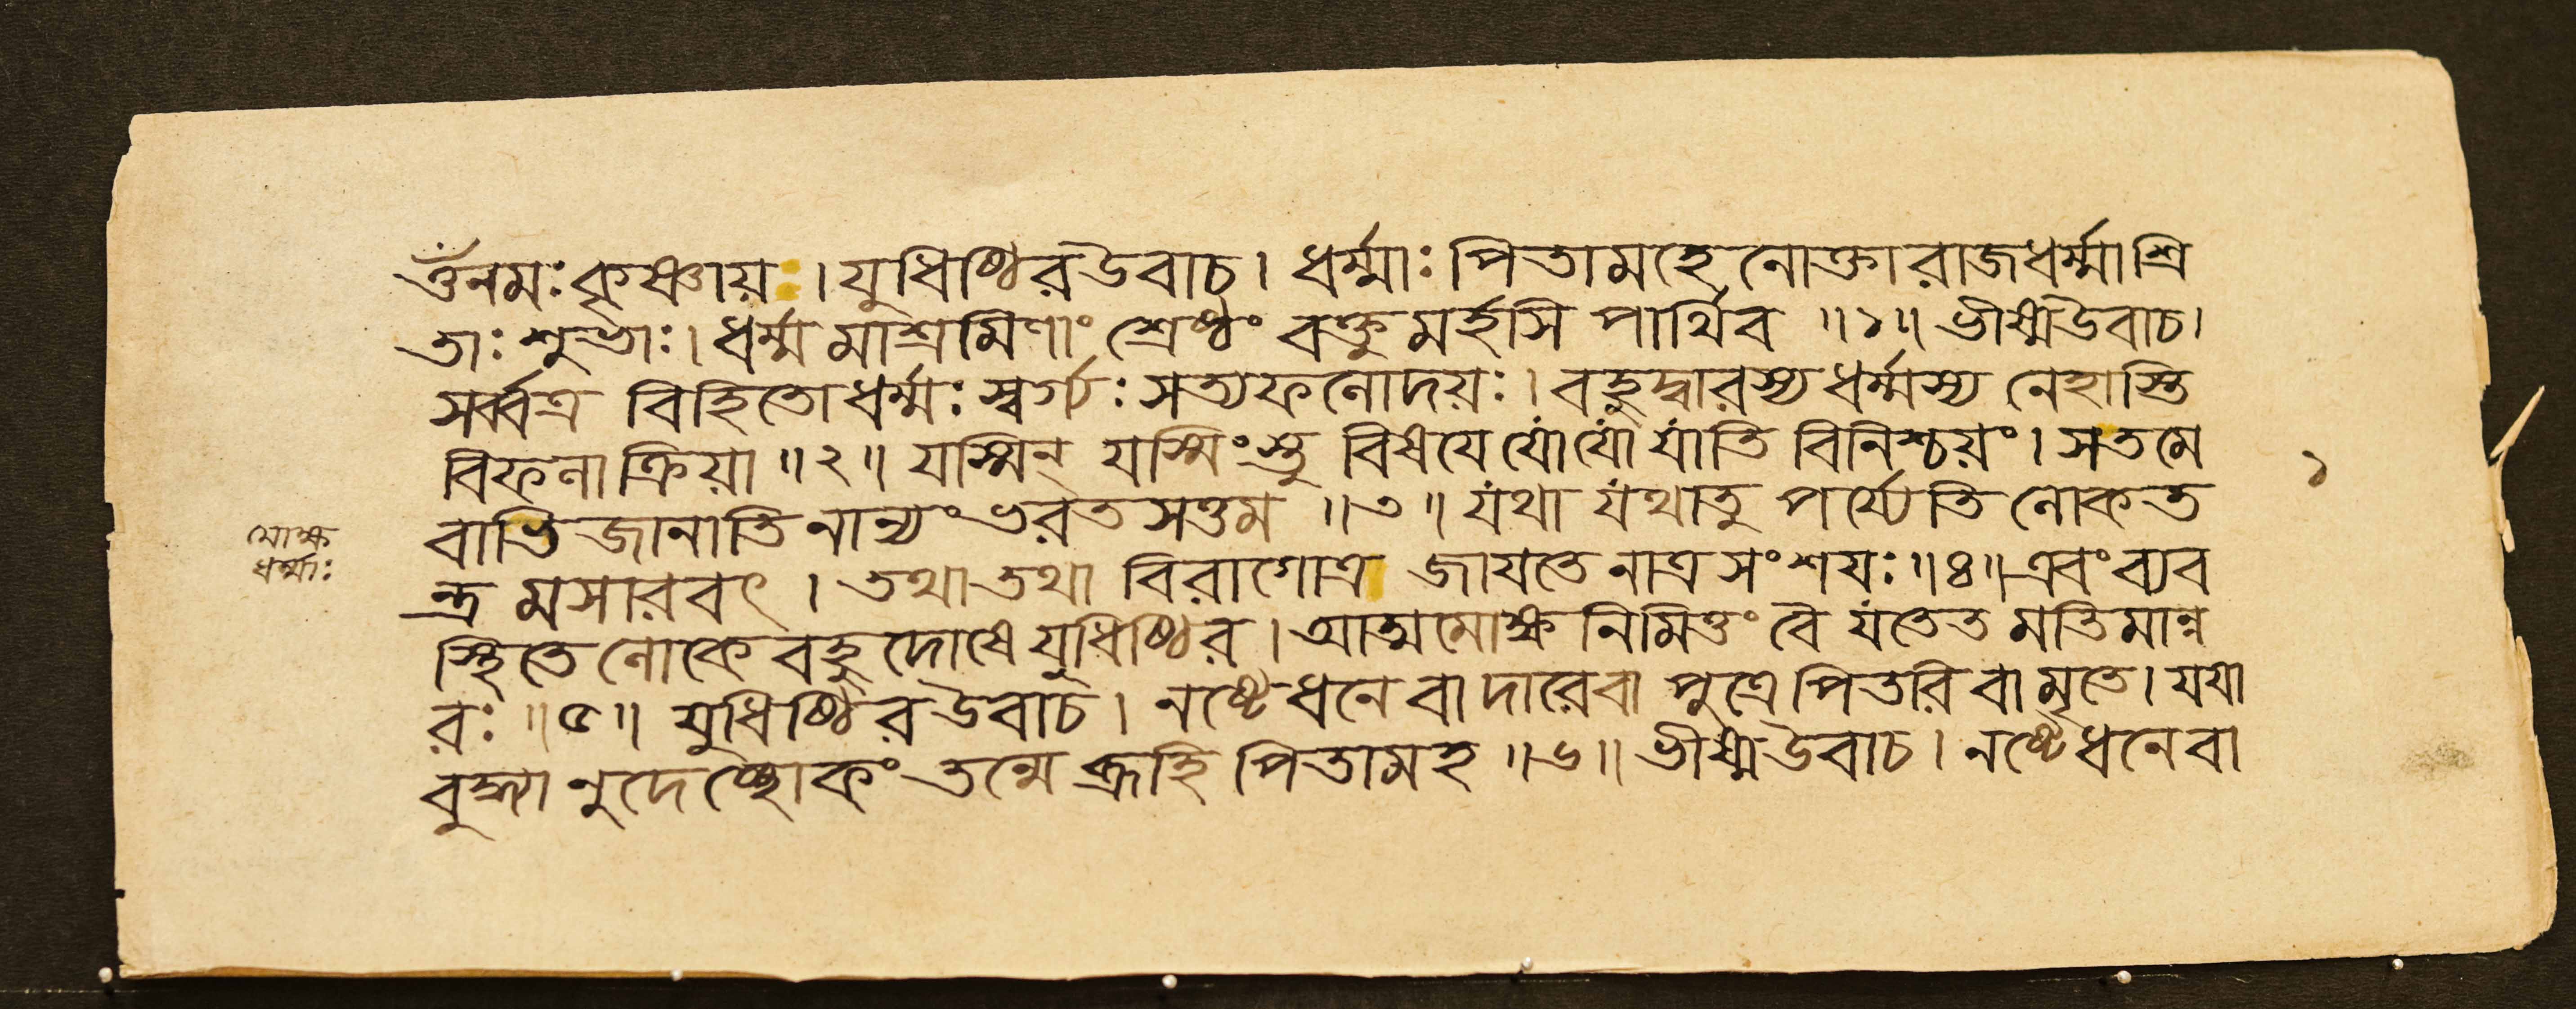 ওঁনমঃ কৃষ্ণায় । যুধিষ্ঠিরউবাচ । ধর্ম্মাঃ পিতামহেনোক্তারাজধর্ম্মাশ্রি
তাঃ শুভাঃ । ধর্ম্মমাশ্রমিণাং শ্রেষ্ঠং বক্তুমর্হসি পার্থিব ॥১॥ ভীষ্মউবাচ ।
সর্ব্বত্র বিহিতোধর্ম্মঃ স্বর্গ্যঃ সত্যফলোদয়ঃ । বহুদ্বারস্যধর্ম্মস্য নেহাস্তি
বিফলাক্রিয়া ॥২॥ যস্মিন্ যস্মিংস্তু বিষয়ে যোযো যাতি বিনিশ্চয়ং । সতমে
১
বাভিজানাতি নান্যং ভরতসত্তম ॥৩॥ যথা যথাতু পর্য্যেতি লোকত
মোক্ষ
ধর্ম্মাঃ
ন্ত্রমসারবৎ । তথাতথা বিরাগোত্র জাযতে নাত্রসংশযঃ ॥৪॥ এবং ব্যব
স্থিতে লোকে বহুদোষে যুধিষ্ঠির । আত্মমোক্ষনিমিত্তং বৈ যতেত মতিমান্ন
রঃ ॥৫॥ যুধিষ্ঠিরউবাচ । নষ্টেধনে বাদারেবা পুত্রে পিতরি বামৃতে । যযা
বুদ্ধ্যানুদেচ্ছোকং তন্মে ব্রূহি পিতামহ ॥৬॥ ভীষ্মউবাচ । নষ্টেধনেবা